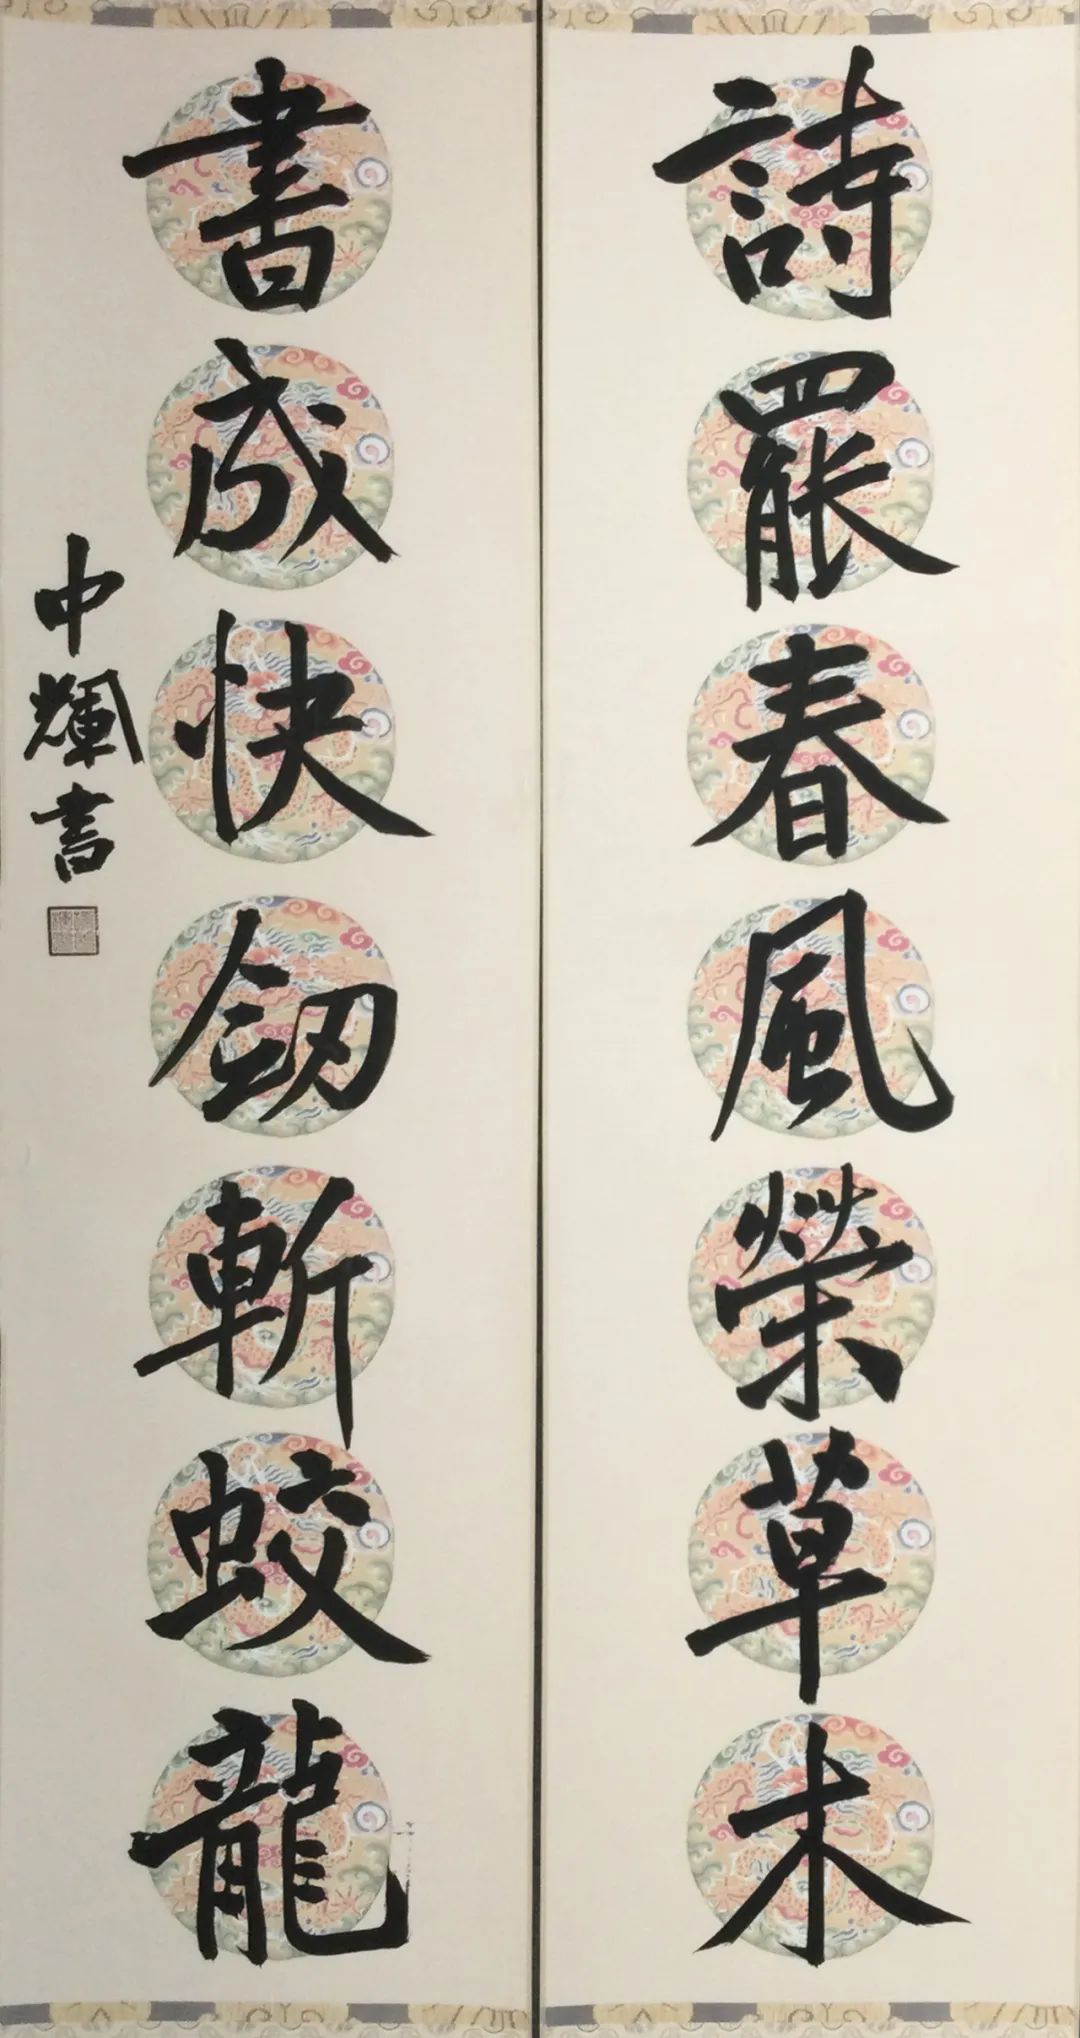 詩罷春風榮草木
書成快劒斬蛟龍
中輝書